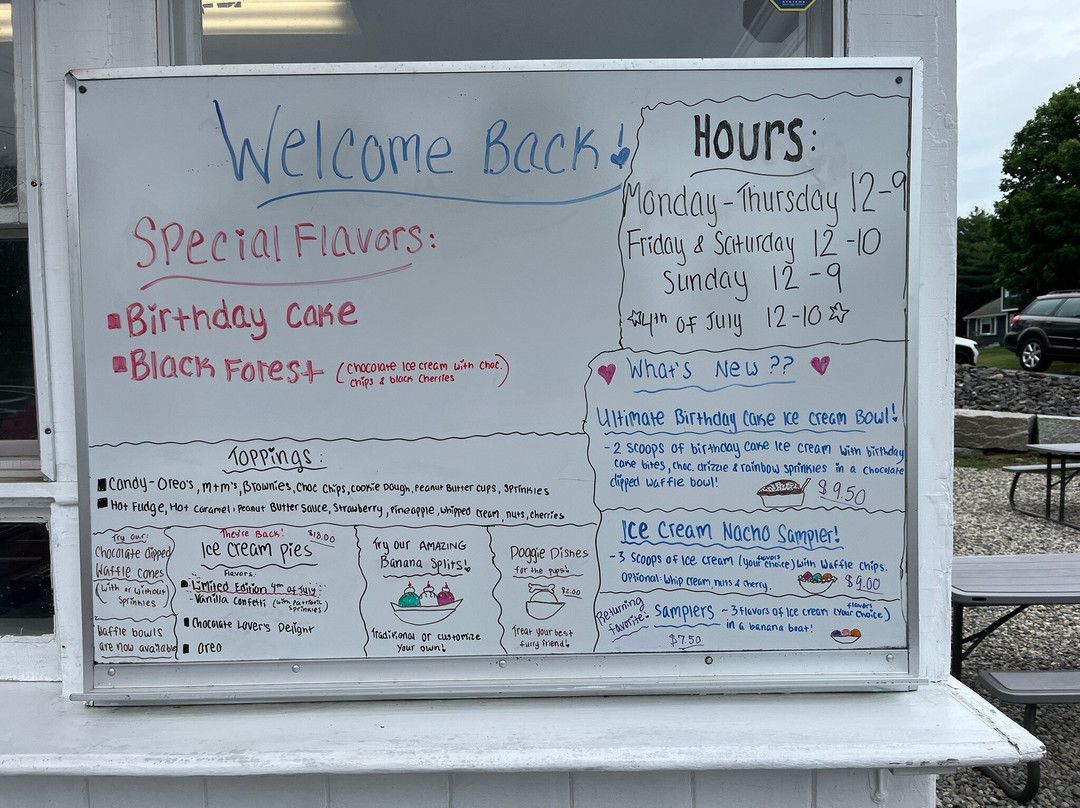 Welcome Back!
Special Flavors:
Birthday Cake
Black Forest (Chocolate Ice cream with choc.
chips & black cherries)
HOURS:
Monday - Thursday 12-9
Friday & Saturday 12-10
Sunday 12-9
4th of July 12-10
What's New??
Ultimate Birthday Cake Ice Cream Bowl!
- 2 scoops of birthday cake ice cream with birthday
cake bites, choc. drizzle & rainbow sprinkles in a chocolate
dipped waffle bowl!
$9.50
Ice Cream Nacho Sampler!
- 3 scoops of Ice cream (your choice) with Waffle Chips.
flavors
Optional: Whip cream, nuts & cherry.
$9.00
Returning
favorite!
Samplers - 3 flavors of Ice cream (your choice)
flavors
in a banana boat!
$7.50
Toppings:
Candy - Oreo's, M+M's, Brownies, Choc Chips, Cookie Dough, Peanut Butter cups, Sprinkles
Hot Fudge, Hot Caramel, Peanut Butter Sauce, Strawberry, Pineapple, Whipped cream, nuts, cherries
Try our:
Chocolate dipped
Waffle cones
(With or Without
Sprinkles)
Waffle bowls
are now available
They're Back!
$18.00
Ice Cream pies
Flavors:
Limited Edition 4th of July:
Vanilla Confetti (with patriotic
sprinkles)
Chocolate Lover's Delight
Oreo
Try our AMAZING
Banana Splits!
Traditional or customize
your own!
Doggie Dishes
for the pups!
$2.00
Treat your best
furry friend!